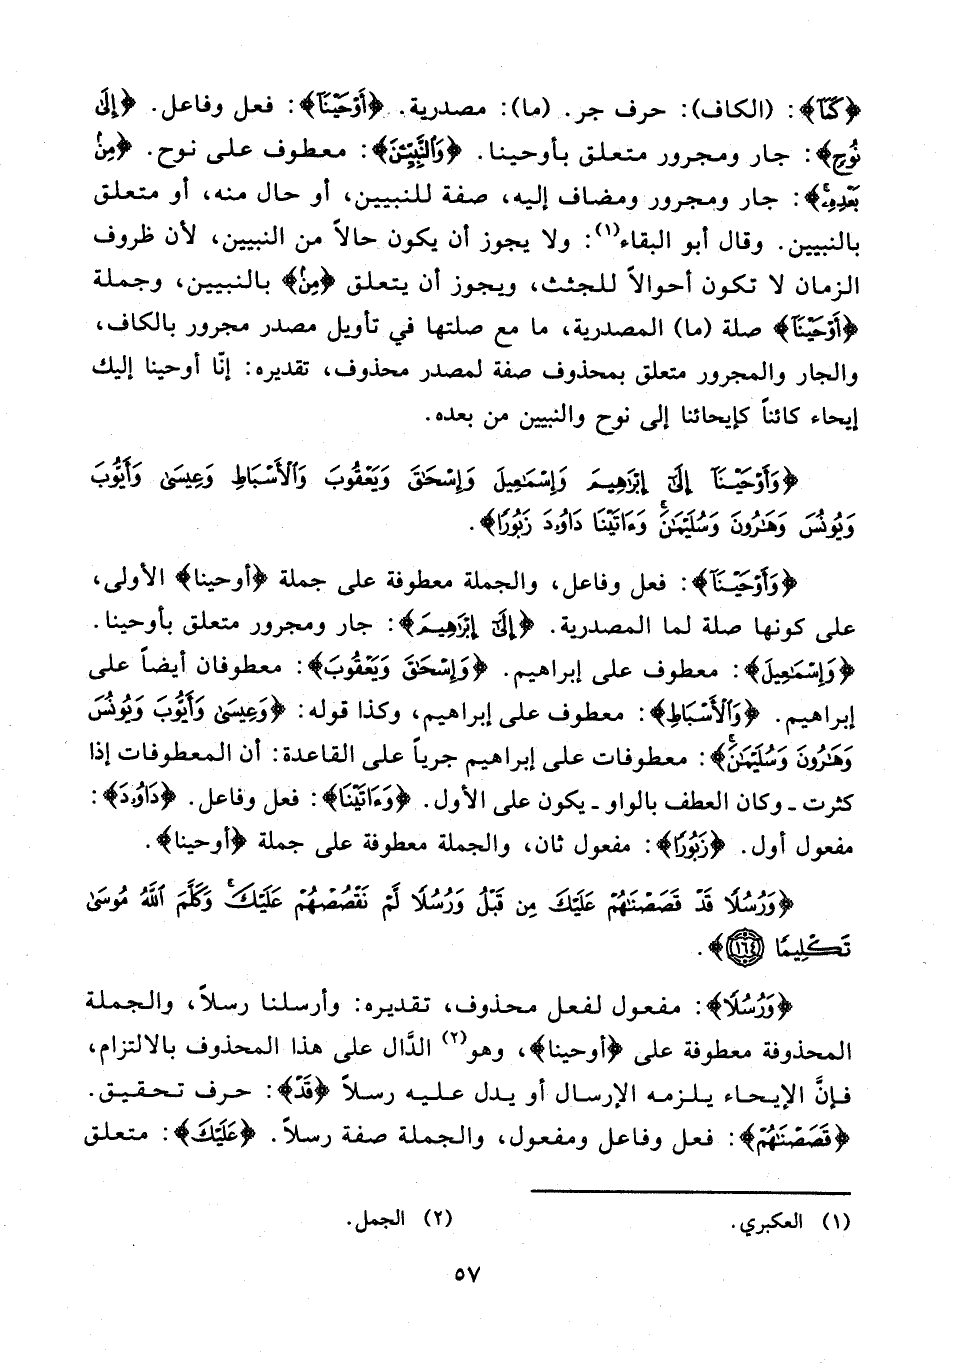 ﴿كَمَآ﴾: (الكاف): حرف جر. (ما): مصدرية. ﴿أَوْحَيْنَآ﴾: فعل وفاعل. ﴿إِلَىٰ
نُوحٍ﴾: جار ومجرور متعلق بأوحينا. ﴿وَٱلنَّبِيِّـۧنَ﴾: معطوف على نوح. ﴿مِنۢ
بَعْدِهِۦۚ﴾: جار ومجرور ومضاف إليه، صفة للنبيين، أو حال منه، أو متعلق
بالنبيين. وقال أبو البقاء(١): ولا يجوز أن يكون حالاً من النبيين، لأن ظروف
الزمان لا تكون أحوالاً للجثث، ويجوز أن يتعلق ﴿مِنۢ﴾ بالنبيين، وجملة
﴿أَوْحَيْنَآ﴾ صلة (ما) المصدرية، ما مع صلتها في تأويل مصدر مجرور بالكاف،
والجار والمجرور متعلق بمحذوف صفة لمصدر محذوف، تقديره: إنّا أوحينا إليك
إيحاء كائناً كإيحائنا إلى نوح والنبيين من بعده.
﴿وَأَوْحَيْنَآ إِلَىٰٓ إِبْرَٰهِيمَ وَإِسْمَٰعِيلَ وَإِسْحَٰقَ وَيَعْقُوبَ وَٱلْأَسْبَاطِ وَعِيسَىٰ وَأَيُّوبَ
وَيُونُسَ وَهَٰرُونَ وَسُلَيْمَٰنَۚ وَءَاتَيْنَا دَاوُۥدَ زَبُورًا﴾.
﴿وَأَوْحَيْنَآ﴾: فعل وفاعل، والجملة معطوفة على جملة ﴿أوحينا﴾ الأولى،
على كونها صلة لما المصدرية. ﴿إِلَىٰٓ إِبْرَٰهِيمَ﴾: جار ومجرور متعلق بأوحينا.
﴿وَإِسْمَٰعِيلَ﴾: معطوف على إبراهيم. ﴿وَإِسْحَٰقَ وَيَعْقُوبَ﴾: معطوفان أيضاً على
إبراهيم. ﴿وَٱلْأَسْبَاطِ﴾: معطوف على إبراهيم، وكذا قوله: ﴿وَعِيسَىٰ وَأَيُّوبَ وَيُونُسَ
وَهَٰرُونَ وَسُلَيْمَٰنَۚ﴾: معطوفات على إبراهيم جرياً على القاعدة: أن المعطوفات إذا
كثرت ـ وكان العطف بالواو ـ يكون على الأول. ﴿وَءَاتَيْنَا﴾: فعل وفاعل. ﴿دَاوُۥدَ﴾:
مفعول أول. ﴿زَبُورًا﴾: مفعول ثان، والجملة معطوفة على جملة ﴿أوحينا﴾.
﴿وَرُسُلًا قَدْ قَصَصْنَٰهُمْ عَلَيْكَ مِن قَبْلُ وَرُسُلًا لَّمْ نَقْصُصْهُمْ عَلَيْكَۚ وَكَلَّمَ ٱللَّهُ مُوسَىٰ
تَكْلِيمًا ١٦٤﴾.
﴿وَرُسُلًا﴾: مفعول لفعل محذوف، تقديره: وأرسلنا رسلاً، والجملة
المحذوفة معطوفة على ﴿أوحينا﴾، وهو(٢) الدَّال على هذا المحذوف بالالتزام،
فإنَّ الإيحاء يلزمه الإرسال أو يدل عليه رسلاً ﴿قَدْ﴾: حرف تحقيق.
﴿قَصَصْنَٰهُمْ﴾: فعل وفاعل ومفعول، والجملة صفة رسلاً. ﴿عَلَيْكَ﴾: متعلق
(١) العكبري. (٢) الجمل.
٥٧